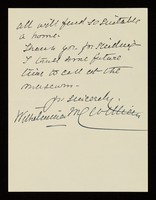 all will find so suitable
a home.
Thank you for kindness
I trust some future
time to call at the
museum —
yrs sincerely,
Wilhelmina McWilliam